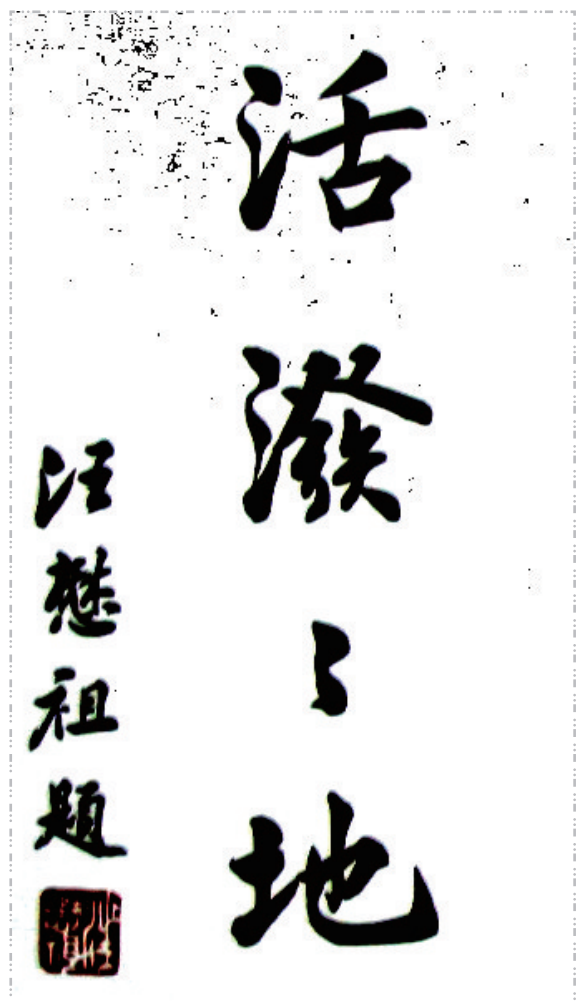 活潑々地
汪懋祖題